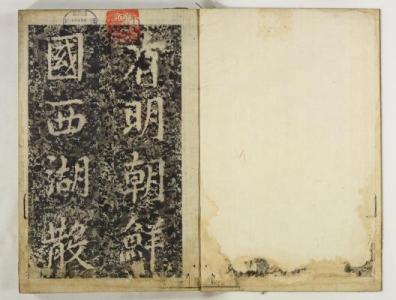 有明朝鮮
國西湖散